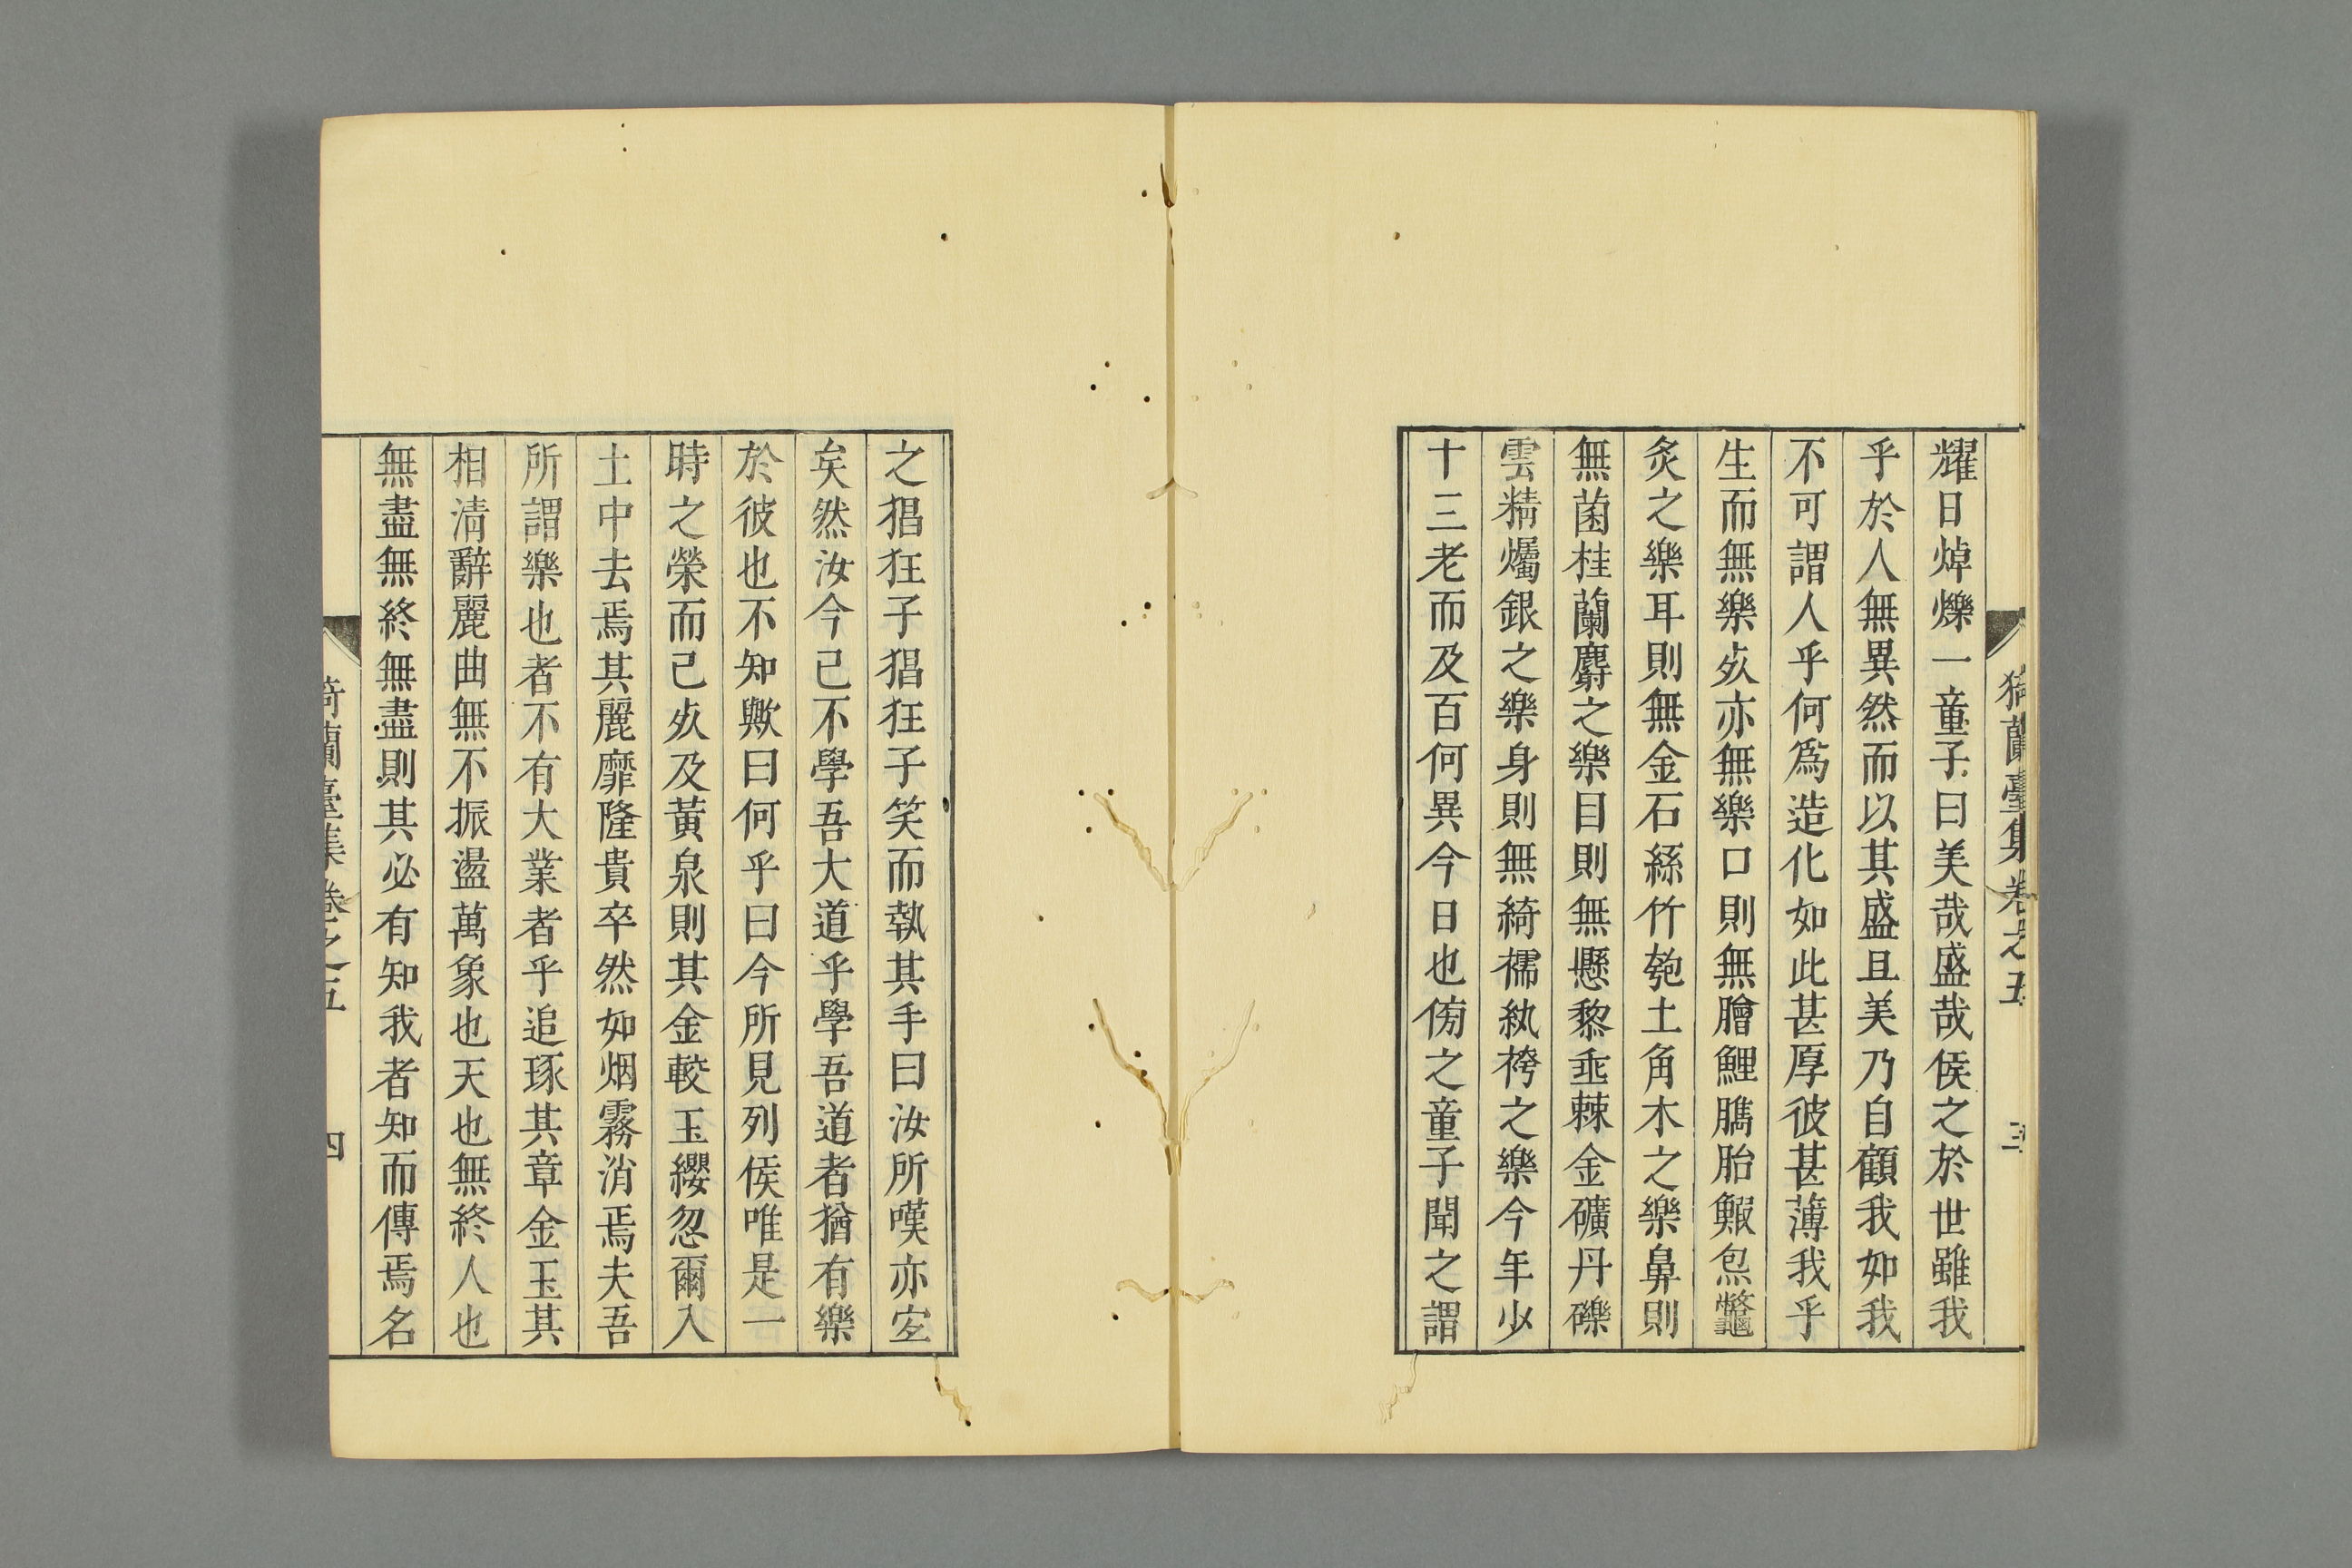 猗蘭臺集卷之五 三
耀日焯爍一童子曰美哉盛哉侯之於世雖我
乎於人無異然而以其盛且美乃自顧我如我
不可謂人乎何爲造化如此甚厚彼甚薄我乎
生而無樂㱙亦無樂口則無膾鯉臇胎鰕炰鼈
炙之樂耳則無金石絲竹匏土角木之樂鼻則
無菌桂蘭麝之樂目則無懸黎垂棘金礦丹礫
雲精爥銀之樂身則無綺襦紈袴之樂今年少
十三老而及百何異今日也傍之童子聞之謂
之猖狂子猖狂子笑而執其手曰汝所嘆亦宜
矣然汝今已不學吾大道乎學吾道者猶有樂
於彼也不知歟曰何乎曰今所見列侯唯是一
時之榮而已㱙及黃泉則其金較玉纓忽爾入
土中去焉其麗靡隆貴卒然如烟霧消焉夫吾
所謂樂也者不有大業者乎追琢其章金玉其
相淸辭麗曲無不振盪萬象也天也無終人也
無盡無終無盡則其必有知我者知而傳焉名
猗蘭臺集卷之五 四